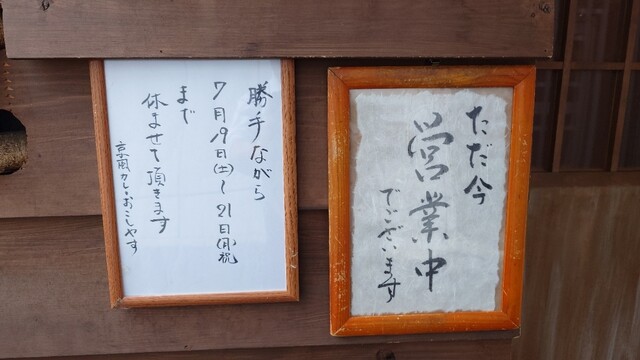 勝手ながら
7月19日(土)〜21日(月)祝
まで
休ませて頂きます
京風カレーおこしやす
ただ今
営業中
でございます